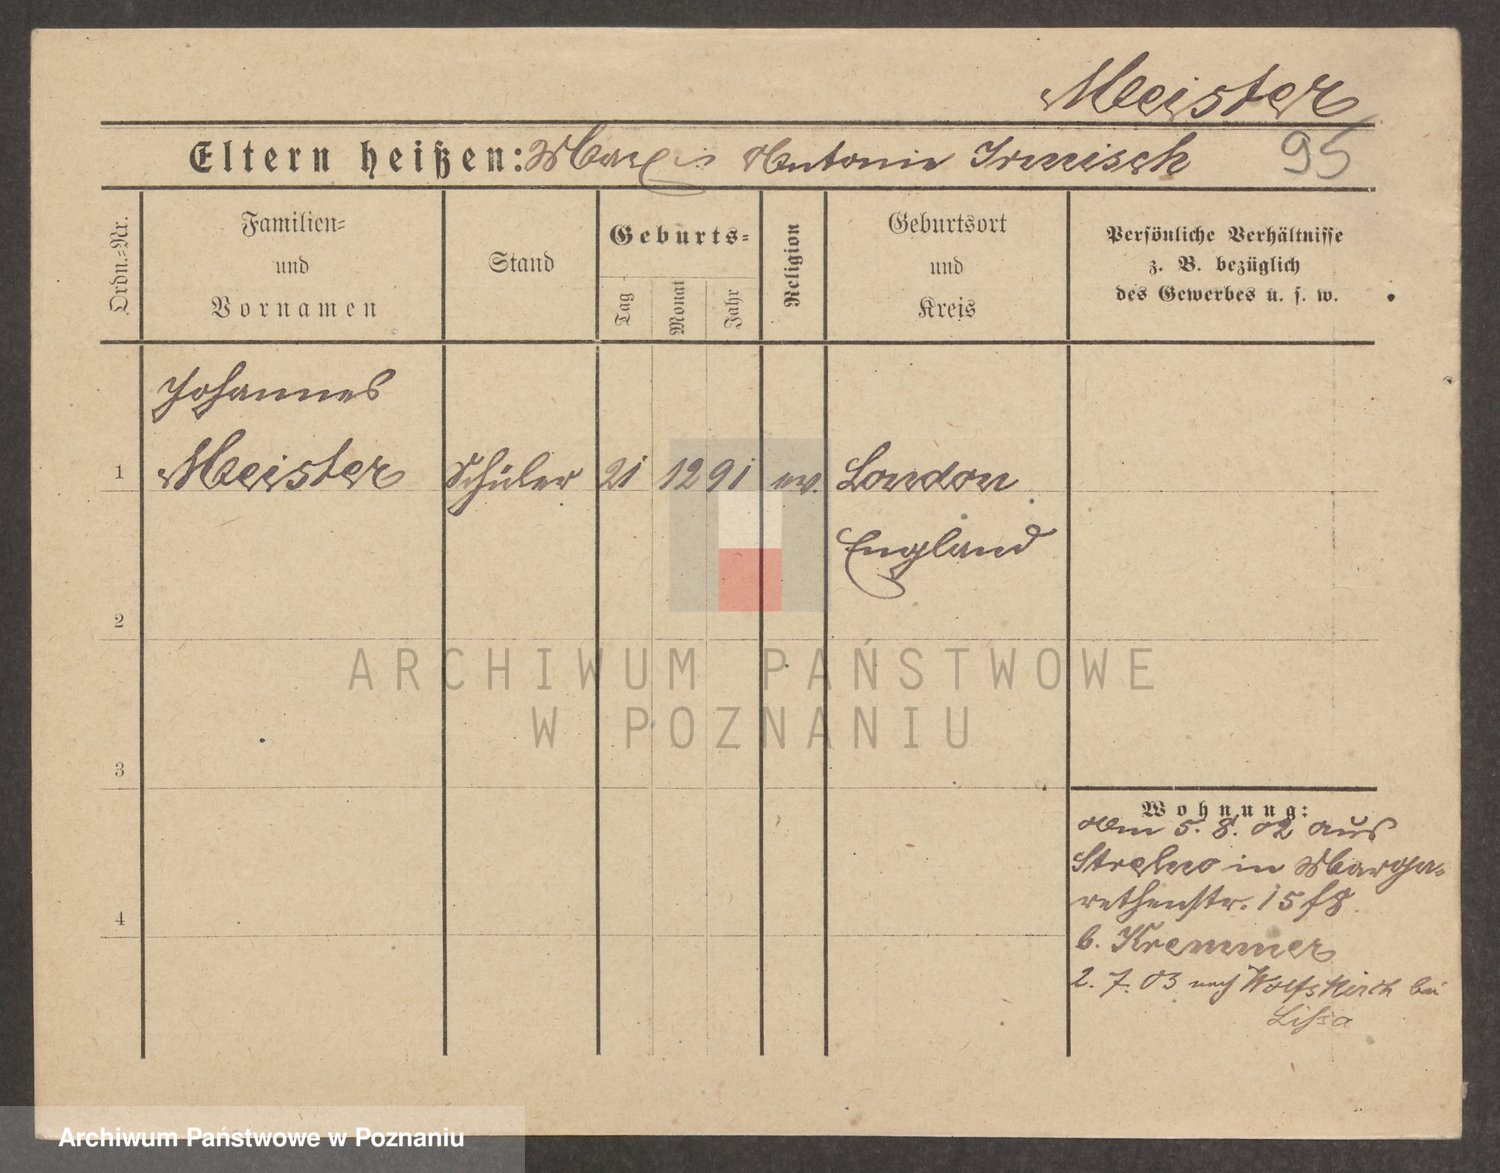 Meister
Eltern heißen: Antonie Irmisch 95
Ordn.-Nr.
Familien-
und
Vornamen
Stand
Geburts-
Tag
Monat
Jahr
Religion
Geburtsort
und
Kreis
Persönliche Verhältnisse
z. B. bezüglich
des Gewerbes u. s. w.
Johannes
1 Meister Schüler 21 12 91 ev. London
England
2
3
4
ARCHIWUM PAŃSTWOWE
W POZNANIU
Wohnung:
Am 5. 8. 02 aus
Strelno in Marga-
rethenstr. 15
b. Kremmer
2. 7. 03 nach Wolfskirch bei
Lissa
Archiwum Państwowe w Poznaniu